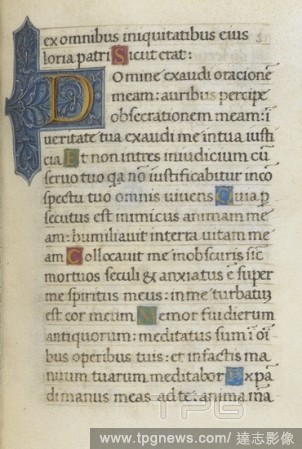 ex omnibus iniquitatibus eius
loria patri Sicut erat:
Domine exaudi oratione
meam: auribus percipe
obsecrationem meam: i
veritate tua exaudi me in tua iusti
cia Et non intres in iudicium cū
servo tuo qa nō iustificabitur in cō
spectu tuo omnis vivens Quia p
secutus est inimicus animam me
am: humiliavit in terra vitam me
am Collocavit me in obscuris sic
mortuos seculi & anxiatus e super
me spiritus meus: in me turbatū
est cor meum Memor fui dierum
antiquorum: meditatus sum i oī
bus operibus tuis: et in factis ma
nuum tuarum meditabor Expā
di manus meas ad te: anima ma
TPG
www.tpgnews.com/達志影像